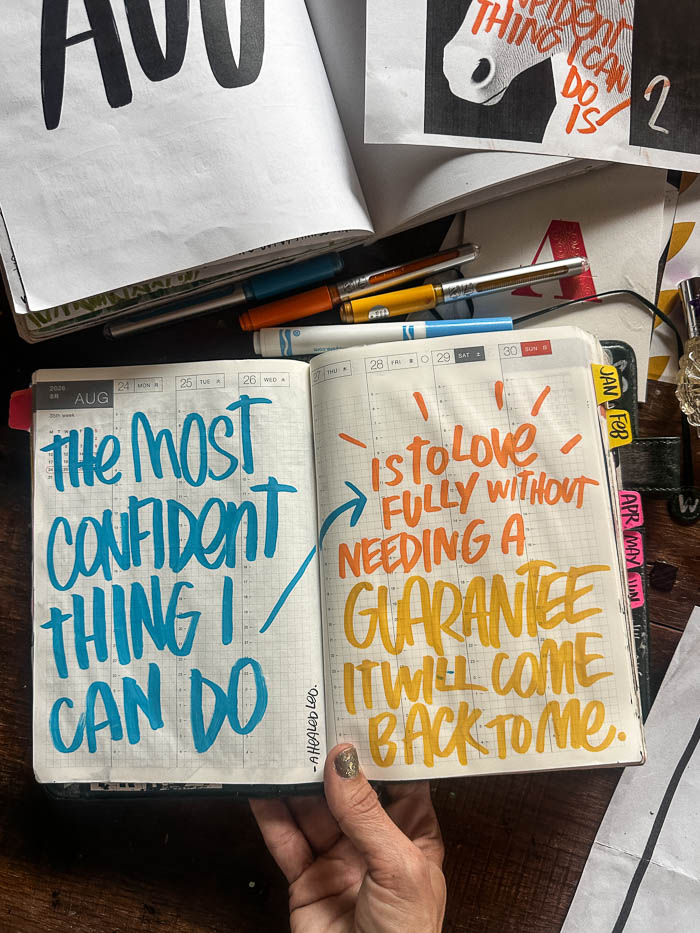 AUG
CONFIDENT
THING I CAN
DO
IS
2
A
2026
8月
AUG
35th week
24 MON 月
25 TUE 火
26 WED 水
27 THU 木
28 FRI 金
29 SAT 土
30 SUN 日
THE MOST
CONFIDENT
THING I
CAN DO
-A HEALED LEO.
IS TO LOVE
FULLY WITHOUT
NEEDING A
GUARANTEE
IT WILL COME
BACK TO ME.
JAN
FEB
APR
MAY
JUN